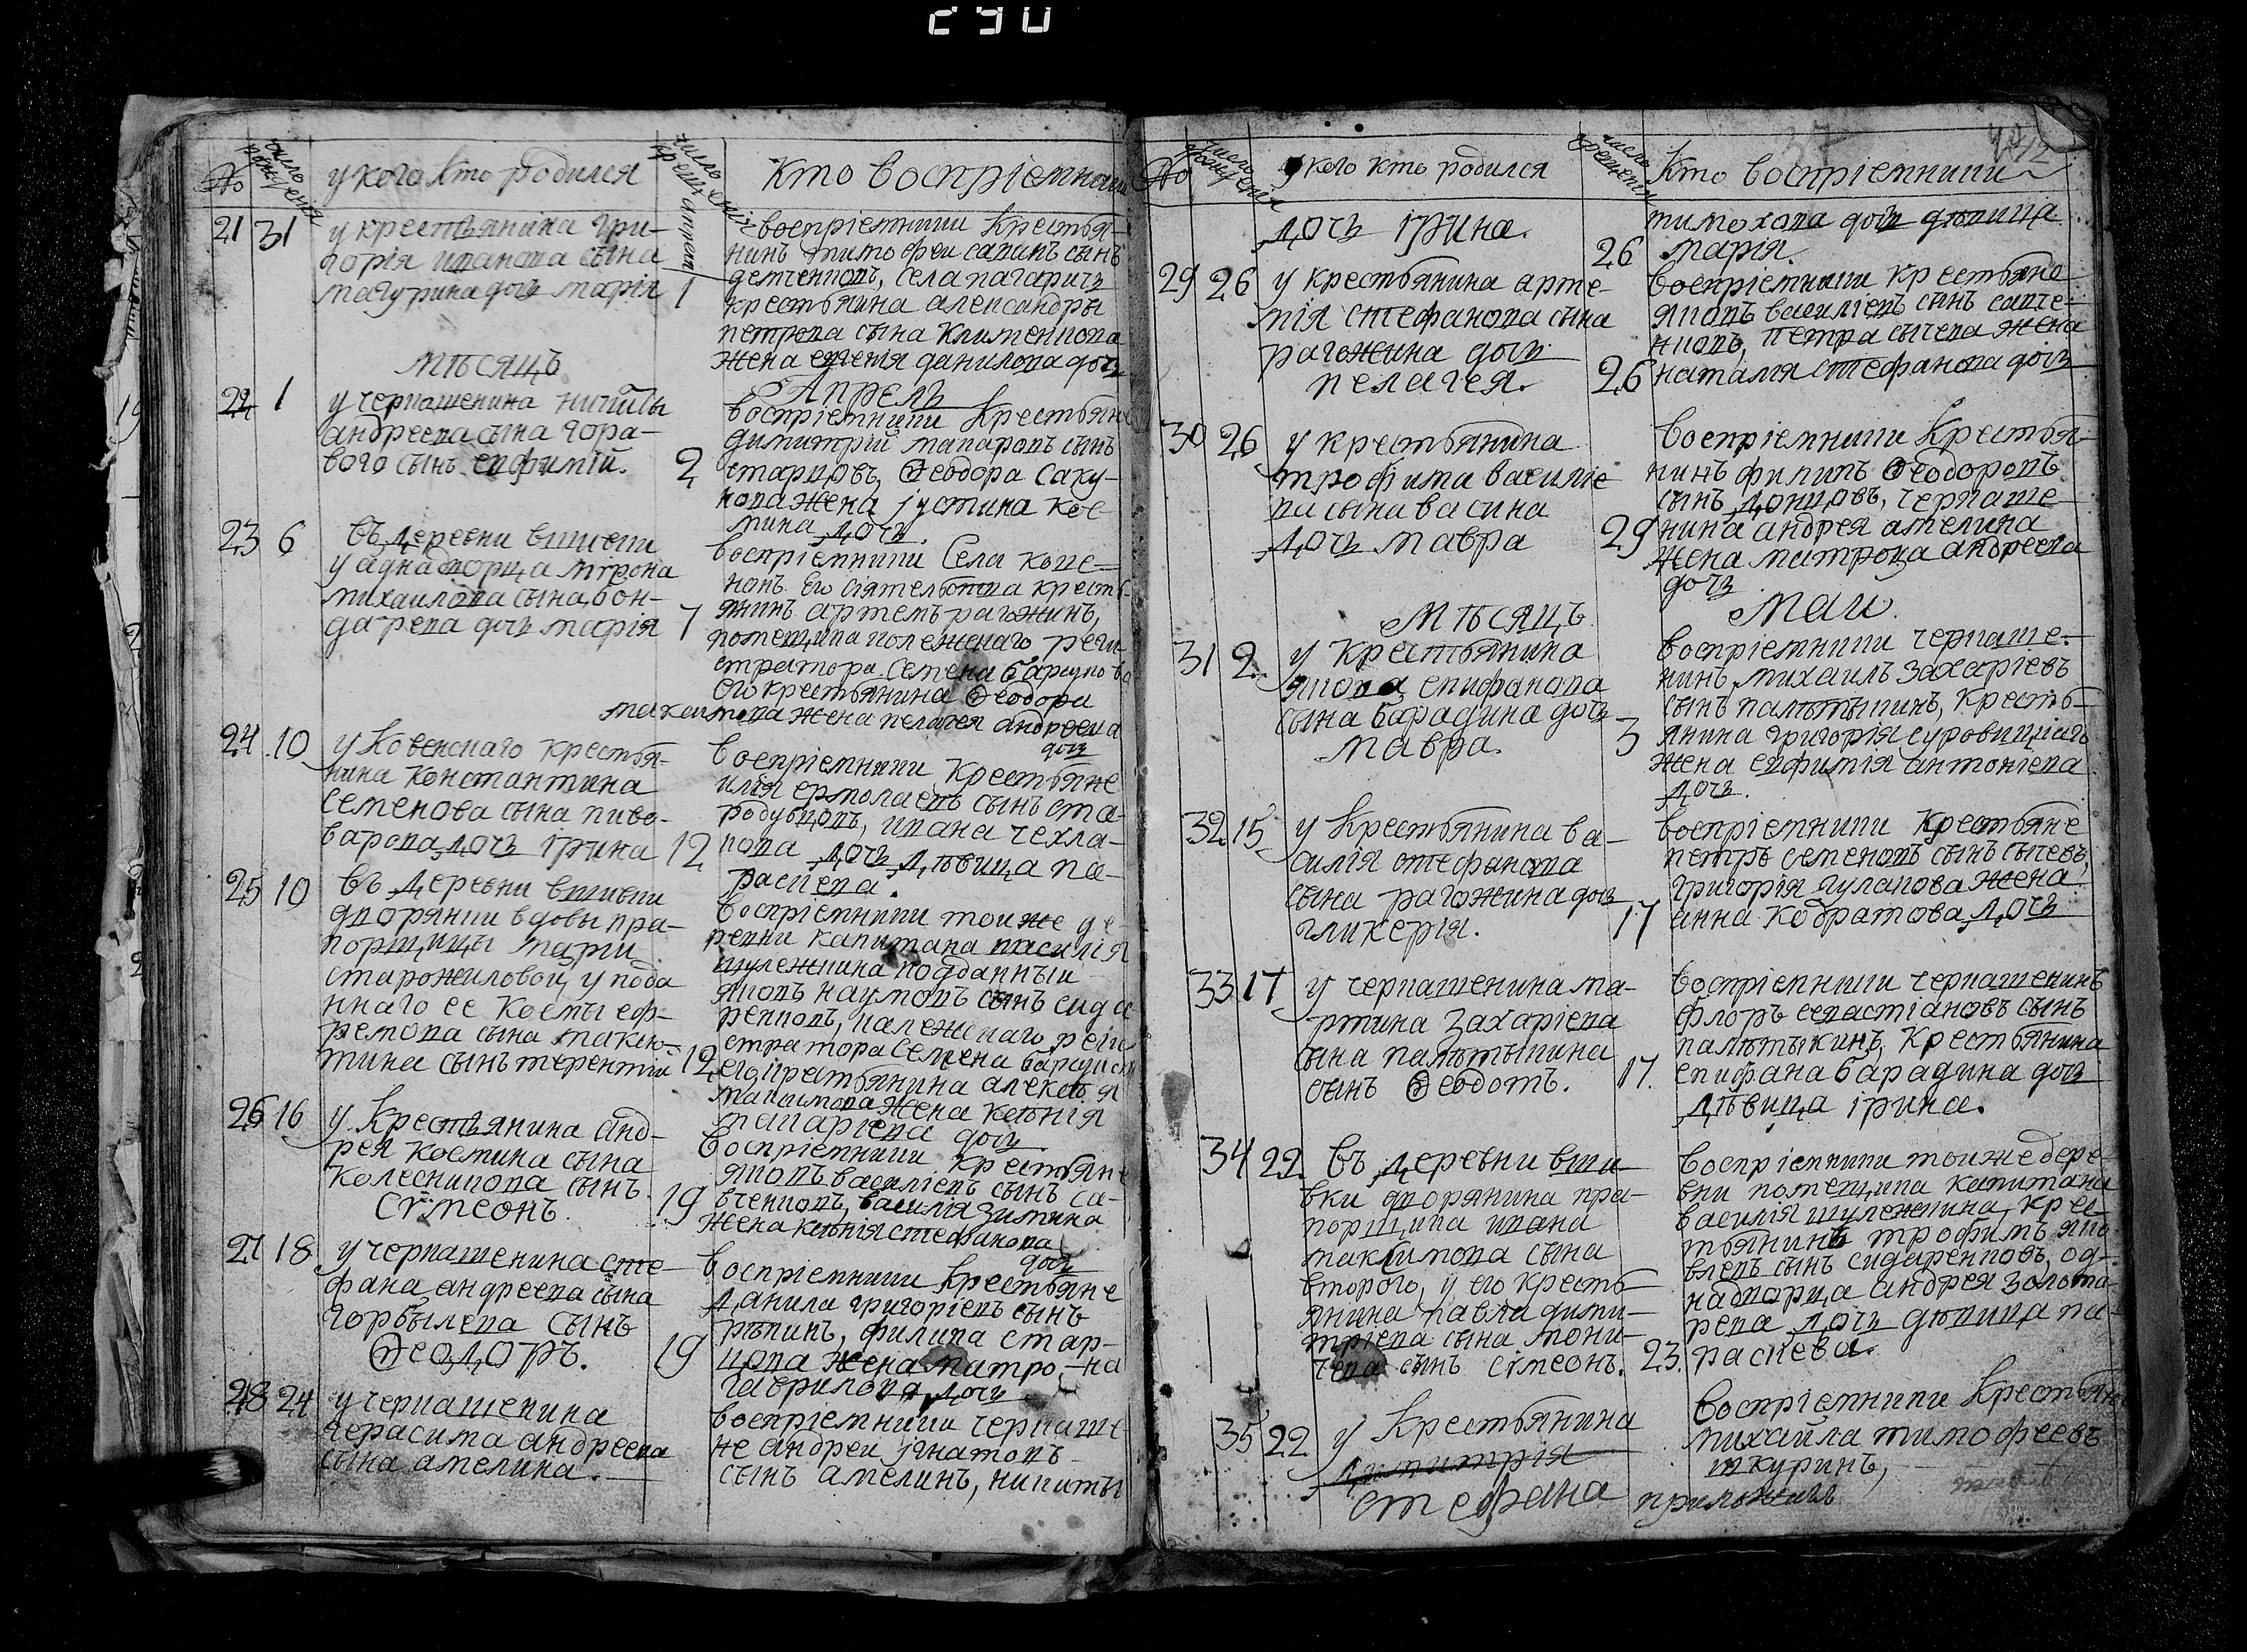 290
№ число рожденія у кого кто родился число крещенія Кто воспріемники
21 31 у крестьянина Гри-
горія иванова сына
магурина дочь марія
апреля 1
воспріемники Крестья-
нинъ тимофеи савинъ сынъ
демченковъ, села
крестьянина александры
петрова сына клименкова
жена евгенія данилова дочь
мѣсяцъ Апрель
22 1 у черкашенина никиты
андреева сына гора-
вого сынъ евфимій.
2
воспріемники Крестьяне
димитрій макаровъ сынъ
старцовъ, Ѳеодора саку-
нова жена іустина кос-
мина дочь.
23 6 въ деревни вшивки
у аднадворца мирона
михаилова сына бон-
дарева дочь марія
7
воспріемники Села коше-
Его сіятельства кресть-
янинъ артемъ рагожинъ,
помещика колежскаго реги-
стратора Семена
его крестьянина Ѳеодора
максимова жена пелагея андреева
дочь
24 10 у Ковенскаго крестья-
нина константина
семенова сына пиво-
варова дочь ірина
12
воспріемники Крестьяне
илія ермолаевъ сынъ ста-
родубцовъ, ивана чехла-
кова дочь дѣвица па-
раскева.
25 10 въ деревни вшивки
дворянки вдовы пра-
порщицы маріи
старожиловой у пода
ннаго ее космы еф-
ремова сына макси-
тина сынъ терентій
12
воспріемники тоиже де-
ревни капитана василія
шулежкина подданныи
яковъ наумовъ сынъ сида
ренковъ, калежскаго реги
стратора Семена
его крестьянина алексѣя
максимова жена ксенія
макаріева дочь
26 16 у Крестьянина анд-
рея космина сына
колесникова сынъ
сѵмеонъ.
19
воспріемники крестьяне
яковъ василіевъ сынъ са-
вченковъ, василія зимина
жена ксенія стефанова
дочь
27 18 у черкашенина сте-
фана андреева сына
горбылева сынъ
Ѳеодоръ.
19
воспріемники крестьяне
данила григоріевъ сынъ
рѣпинъ, филипа стар-
цова жена матро-на
гаврилова дочь
28 24 у черкашенина
герасима андреева
сына амелина.
воспріемники черкаше
не андреи игнатовъ
сынъ амелинъ, никиты
№ число рожденія у кого кто родился число крещенія Кто воспріемники
дочь ірина.
26
тимохова дочь дѣвица
марія.
29 26 у крестьянина арте-
мія стефанова сына
рагожина дочь
пелагея.
26
воспріемники крестьяне
яковъ василіевъ сынъ савче-
нковъ, петра сычева жена
наталія стефанова дочь
30 26 у крестьянина
трофима василіе
ва сына васина
дочь мавра
29
воспріемники крестья-
нинъ филипъ Ѳеодоровъ
сынъ донцовъ, черкаше
нина андрея амелина
жена матрона андреева
дочь
мѣсяцъ маи.
31 2 у крестьянина
якова епифанова
сына барадина дочь
мавра.
3
воспріемники черкаше-
нинъ михаилъ захаріевъ
сынъ палѣтыкинъ, кресть-
янина григорія суровицкаго
жена евфимія антоніева
дочь.
32 15 у крестьянина ва-
силія стефанова
сына рагожина дочь
гликерія.
17
воспріемники крестьяне
петръ семеновъ сынъ сычевъ,
григорія гулакова жена
анна кодратова дочь
33 17 у черкашенина ма-
ртина захаріева
сына палѣтыкина
сынъ Ѳеодотъ.
17.
воспріемники черкашенинъ
флоръ севастіановъ сынъ
палѣтыкинъ, крестьянина
епифана барадина дочь
дѣвица ірина.
34 22 въ деревни вши-
вки дворянина пра-
порщика ивана
максимова сына
второго, у его кресть-
янина павла дими-
тріева сына мони-
чева сынъ сѵмеонъ.
23.
воспріемники тоиже дере-
вни помещика капитана
василія шулежкина, крес-
тьянинъ трофимъ яко-
влевъ сынъ сидаренковъ, од-
надворца андрея золота-
рева дочь дѣвица па-
раскева.
35 22 у Крестьянина
димитрія
стефана
воспріемники Крестьяне
михаила тимофеевъ
шкуринъ,